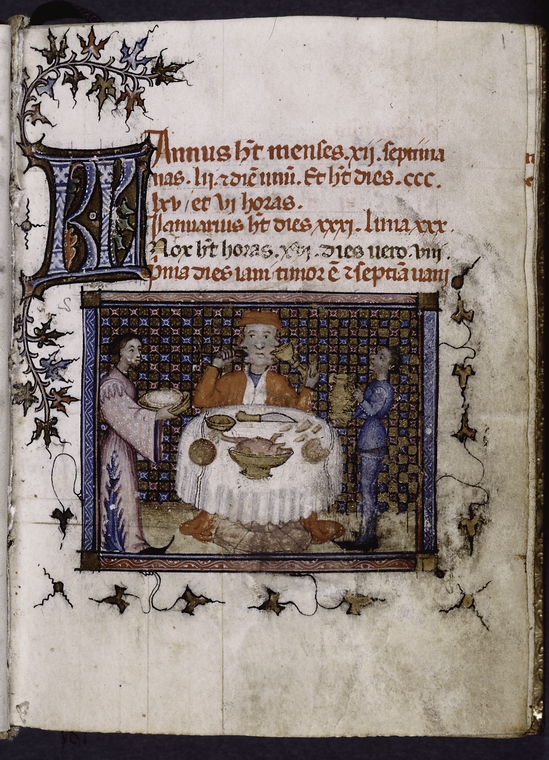 KL Annus h̄t menses .xij. septima
nas. lij. ⁊ diē unū. Et h̄t dies .ccc.
lxv / et vj horas.
Januarius h̄t dies xxxi. luna xxx.
Nox h̄t horas .xvj. dies uero .viij.
p̄ma dies iani timor ē ⁊ septiā uani